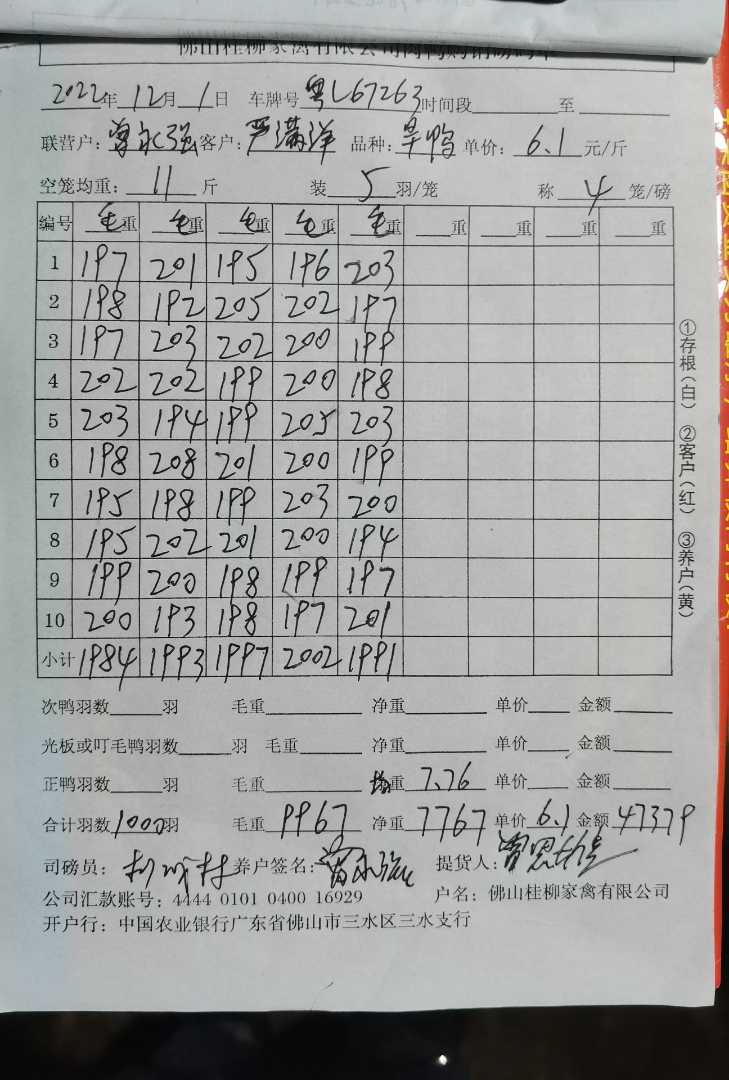 佛山桂柳家禽有限公司
2022年12月1日 车牌号粤L67263时间段 至
联营户: 曾永强 客户: 严满洋 品种: 旱鸭 单价: 6.1 元/斤
空笼均重: 11 斤 装 5 羽/笼 称 4 笼/磅
编号 毛重 毛重 毛重 毛重 毛重 重 重 重 重
1 197 201 195 196 203
2 198 192 205 202 197
3 197 203 202 200 199
4 202 202 199 200 198
5 203 194 199 205 203
6 198 208 201 200 199
7 195 198 199 203 200
8 195 202 201 200 194
9 199 200 198 199 197
10 200 193 198 197 201
小计 1984 1993 1997 2002 1991
次鸭羽数 羽 毛重 净重 单价 金额
光板或叮毛鸭羽数 羽 毛重 净重 单价 金额
正鸭羽数 羽 毛重 均重 7.76 单价 金额
合计羽数 1000 羽 毛重 9967 净重 7767 单价 6.1 金额 47379
司磅员: 养户签名: 曾永强 提货人:
公司汇款账号: 4444 0101 0400 16929 户名: 佛山桂柳家禽有限公司
开户行: 中国农业银行广东省佛山市三水区三水支行
①存根(白) ②客户(红) ③养户(黄)